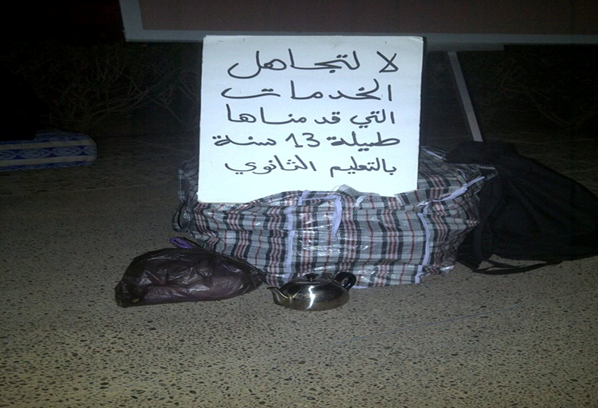 لا لتجاهل
الخدمات
التي قدمناها
طيلة 13 سنة
بالتعليم الثانوي